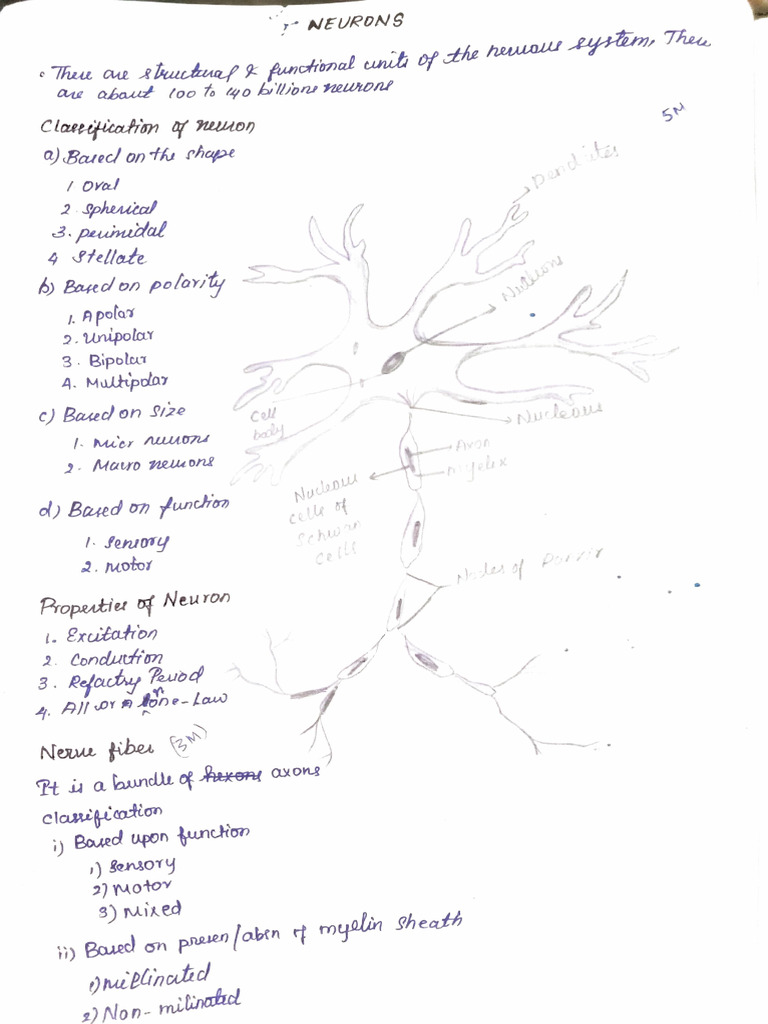 NEURONS
There are structural & functional units of the nervous system. There
are about 100 to 140 billions neurons
5M
Classification of neuron
a) Based on the shape
1 Oval
2. Spherical
3. perimidal
4 Stellate
b) Based on polarity
1. Apolar
2. Unipolar
3. Bipolar
4. Multipolar
c) Based on Size
1. Micr neurons
2. Macro neurons
d) Based on function
1. Sensory
2. Motor
Dendrites
Cell
body
Nucleous
Axon
Nucleous
cells of
Schwan
Cells
Nodes of
Properties of Neuron
1. Excitation
2. Conduction
3. Refactry Period
4. All or None-Law
Nerve fiber (3M)
It is a bundle of axons
classification
i) Based upon function
1) Sensory
2) Motor
3) Mixed
ii) Based on presen/absn of myelin sheath
1) millinated
2) Non-milinated